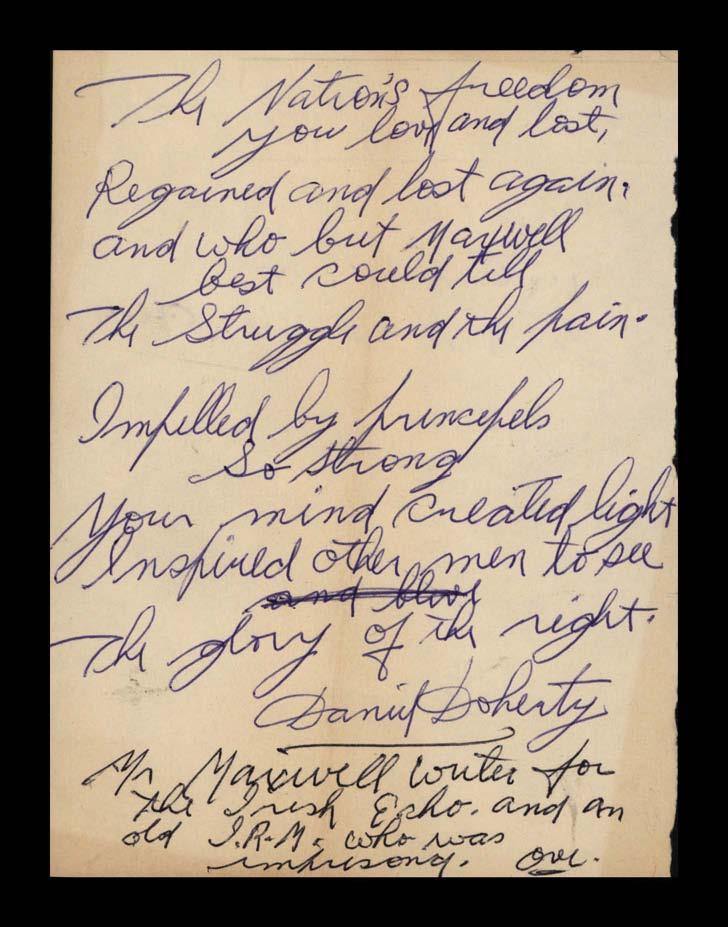 The Nation's freedom
you love and lost,
Regained and lost again.
and who but Maxwell
best could tell
The Struggle and the pain.
Impelled by princepels
So strong
Your mind created light
Inspired other men to see
and
The glory of the right.
Daniel Doherty
Mr Maxwell writer for
the Irish Echo. and an
old I.R.M. who was
over.